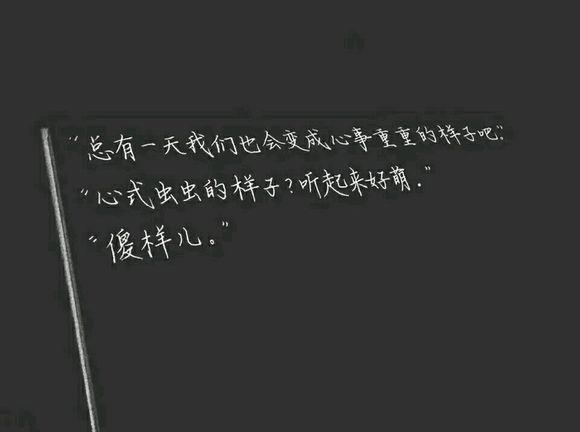 “总有一天我们也会变成心事重重的样子吧.”
“心式虫虫的样子?听起来好萌.”
“傻样儿。”